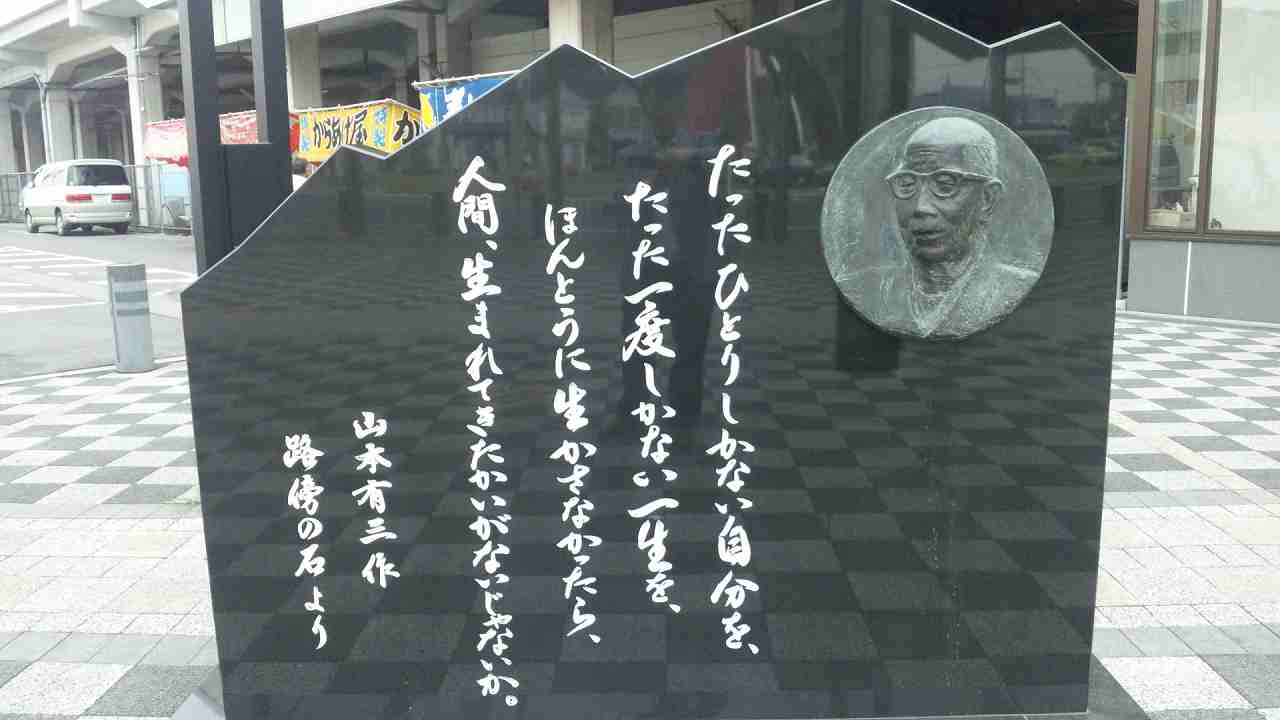 たったひとりしかない自分を、
たった一度しかない一生を、
ほんとうに生かさなかったら、
人間、生まれてきたかいがないじゃないか。
山本有三作
路傍の石より
からあげ屋
か